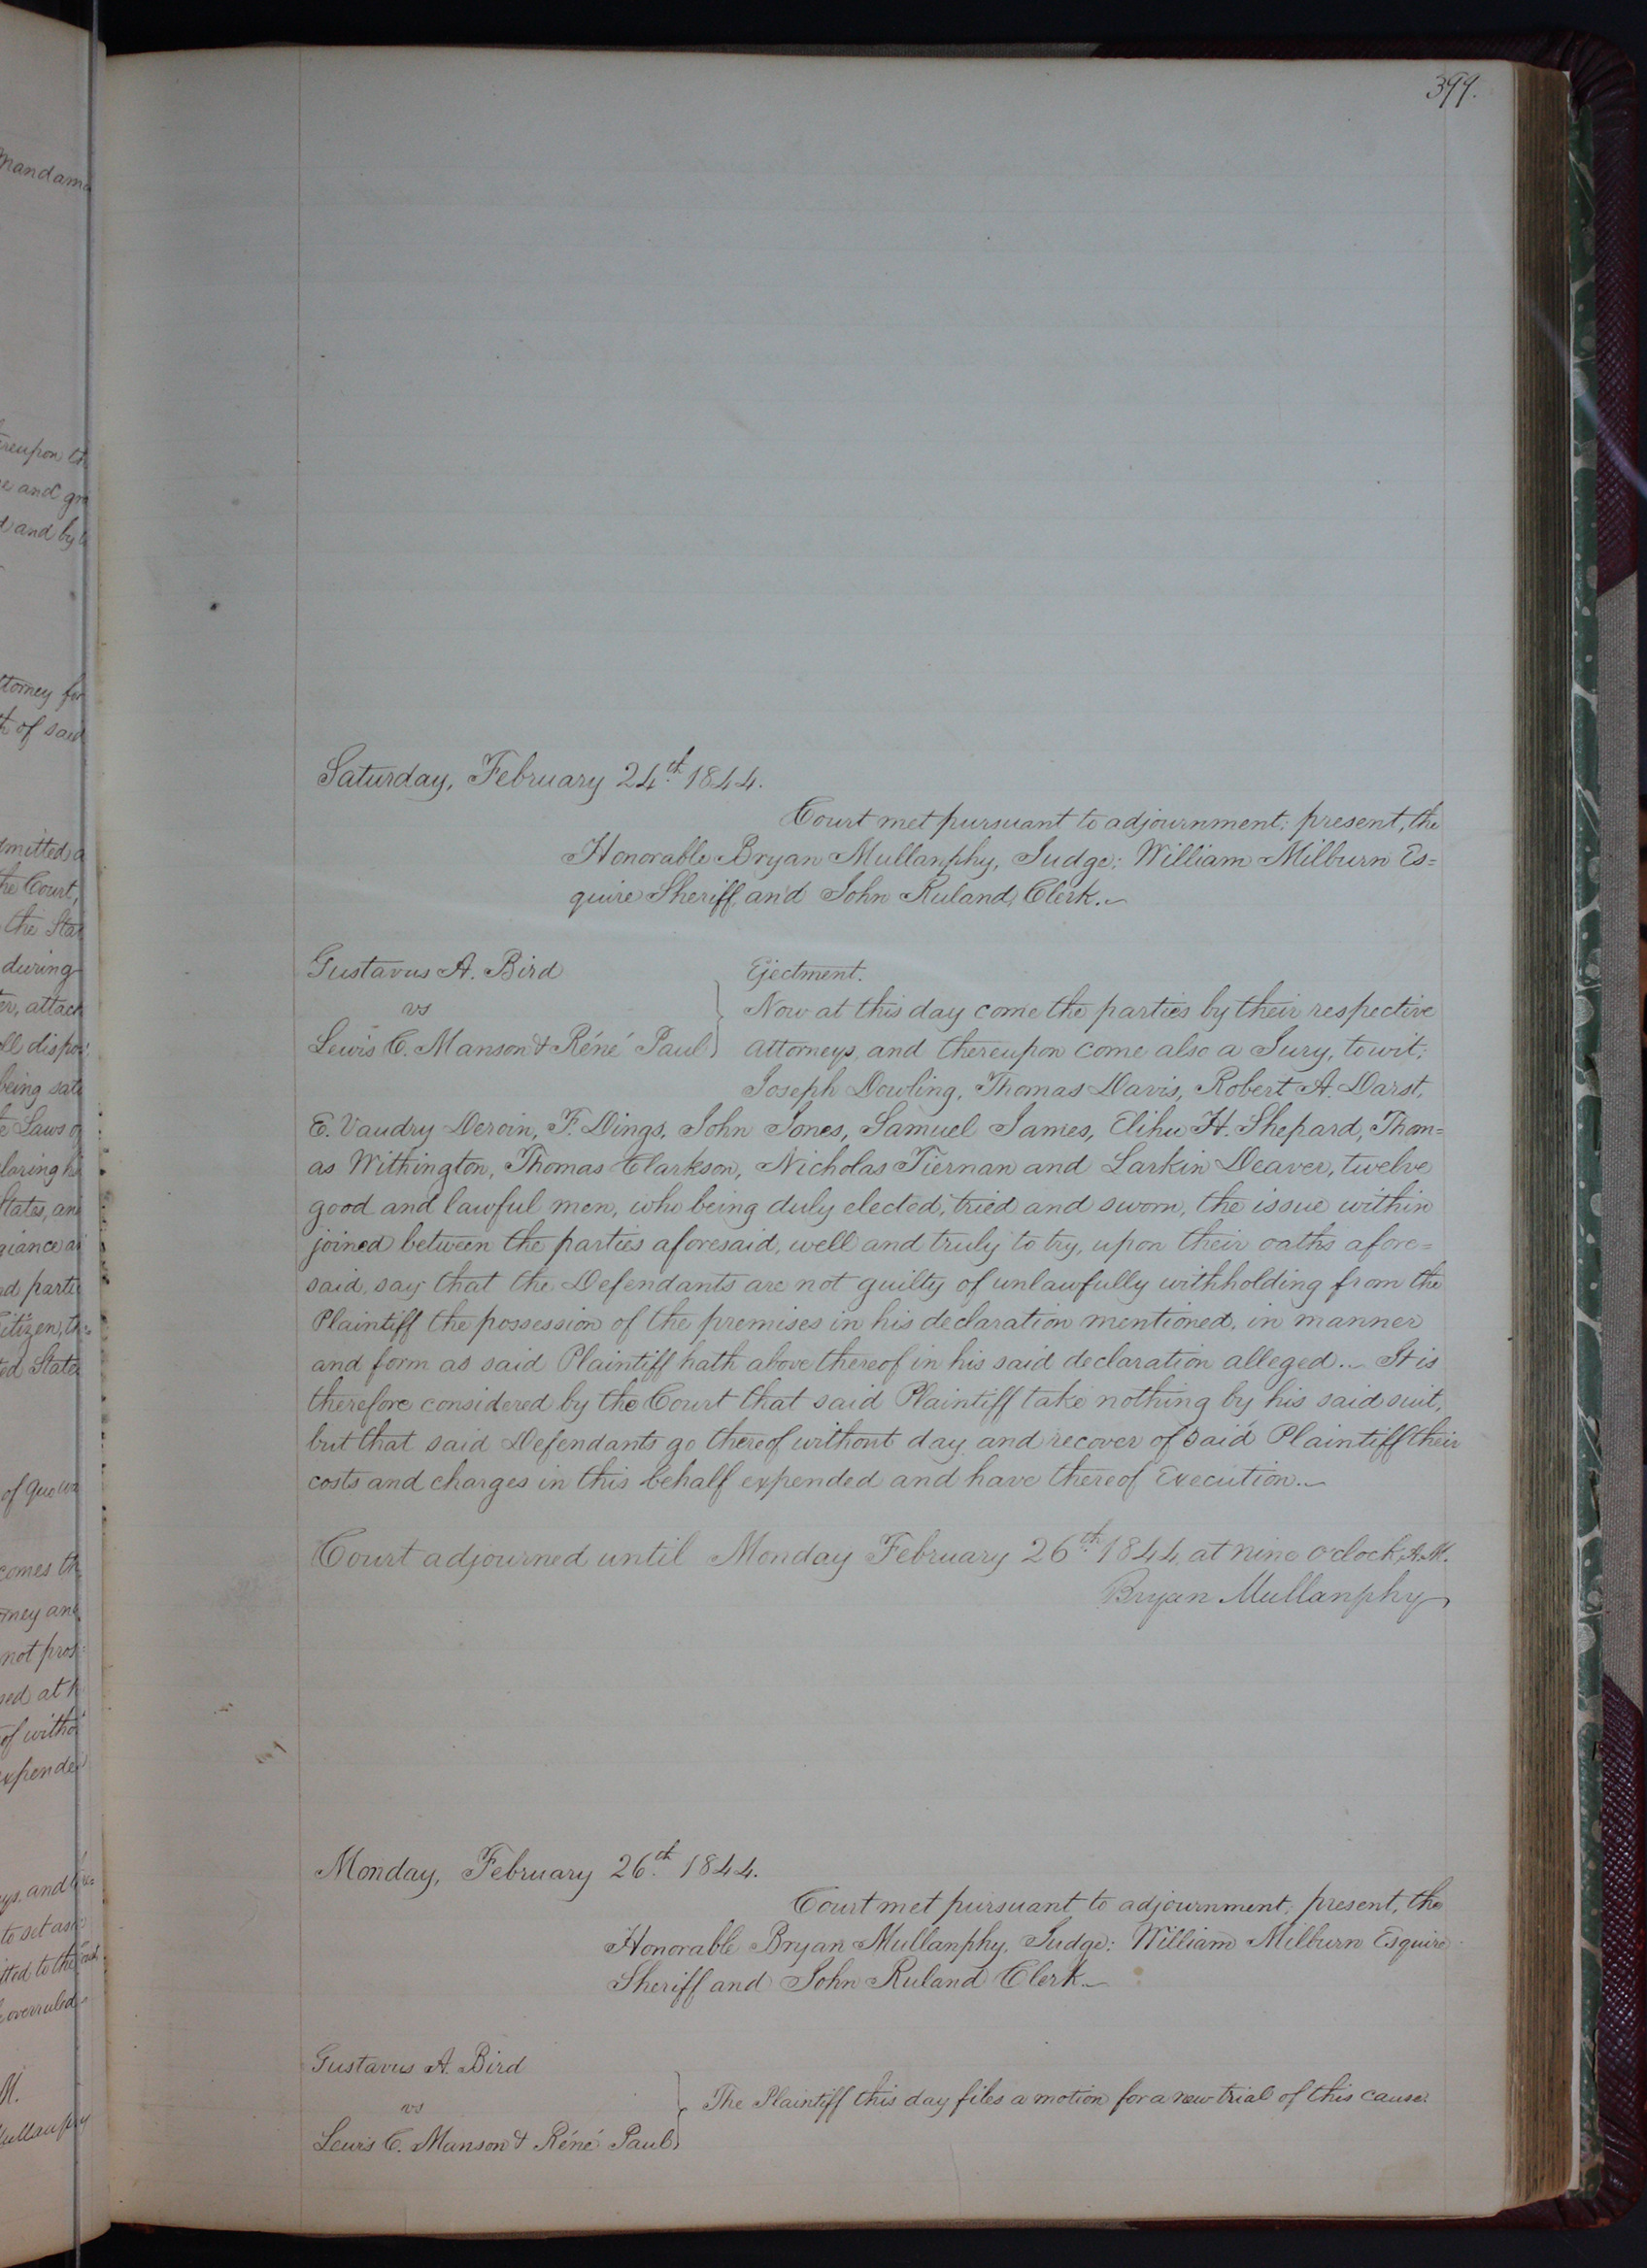 399.
Saturday, February 24th 1844.
Court met pursuant to adjournment; present, the
Honorable Bryan Mullanphy, Judge; William Milburn Es=
quire Sheriff and John Ruland, Clerk.
Gustavus A. Bird
vs
Lewis C. Manson & Réné Paul
Ejectment.
Now at this day come the parties by their respective
attorneys, and thereupon come also a Jury, to wit;
Joseph Dowling, Thomas Davis, Robert A. Darst,
E. Vaudry Deroin, F. Dings, John Jones, Samuel James, Elihu H. Shepard, Thom=
as Withington, Thomas Clarkson, Nicholas Tiernan and Larkin Deaver, twelve
good and lawful men, who being duly elected, tried and sworn, the issue within
joined between the parties aforesaid, well and truly to try, upon their oaths afore=
said, say that the Defendants are not guilty of unlawfully withholding from the
Plaintiff the possession of the premises in his declaration mentioned, in manner
and form as said Plaintiff hath above thereof in his said declaration alleged. It is
therefore considered by the Court that said Plaintiff take nothing by his said suit,
but that said Defendants go thereof without day, and recover of said Plaintiff their
costs and charges in this behalf expended and have thereof Execution.
Court adjourned until Monday February 26th 1844, at nine o'clock, A.M.
Bryan Mullanphy
Monday, February 26th 1844.
Court met pursuant to adjournment; present, the
Honorable Bryan Mullanphy, Judge; William Milburn Esquire
Sheriff and John Ruland Clerk.
Gustavus A. Bird
vs
Lewis C. Manson & Réné Paul
The Plaintiff this day files a motion for a new trial of this cause.